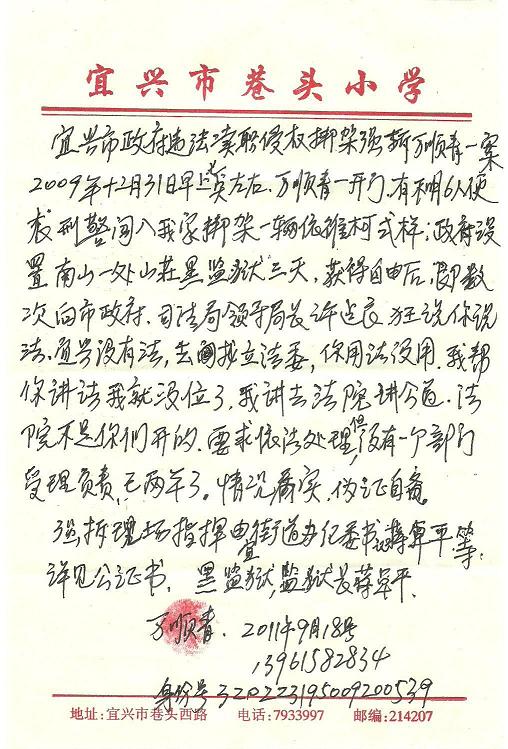 宜兴市巷头小学
宜兴市政府违法渎职侵权绑架强拆万顺青一案
2009年12月31日早上 左右.万顺青一开门,有不明6人便
衣刑警闯入我家绑架一辆依维柯式样;政府设
置南山一处山莊黑监狱三天,获得自由后,即数
次向市政府.司法局领导局长许 良.狂说你说
法.宜兴没有法,去 找立法委,你用法没用.我帮
你讲法我就没位了,我讲去法院讲公道.法
院不是你们开的.要求依法处理,但没有一个部门
受理负责,已两年了。情况属实,伪证自负。
强拆现场指挥由宜街道办纪委书记蒋军平等;
详见公证书.黑监狱,监狱长蒋军平.
万顺青.2011年9月18号
13961582834
身份号320223195009200539
地址:宜兴市巷头西路 电话:7933997 邮编:214207